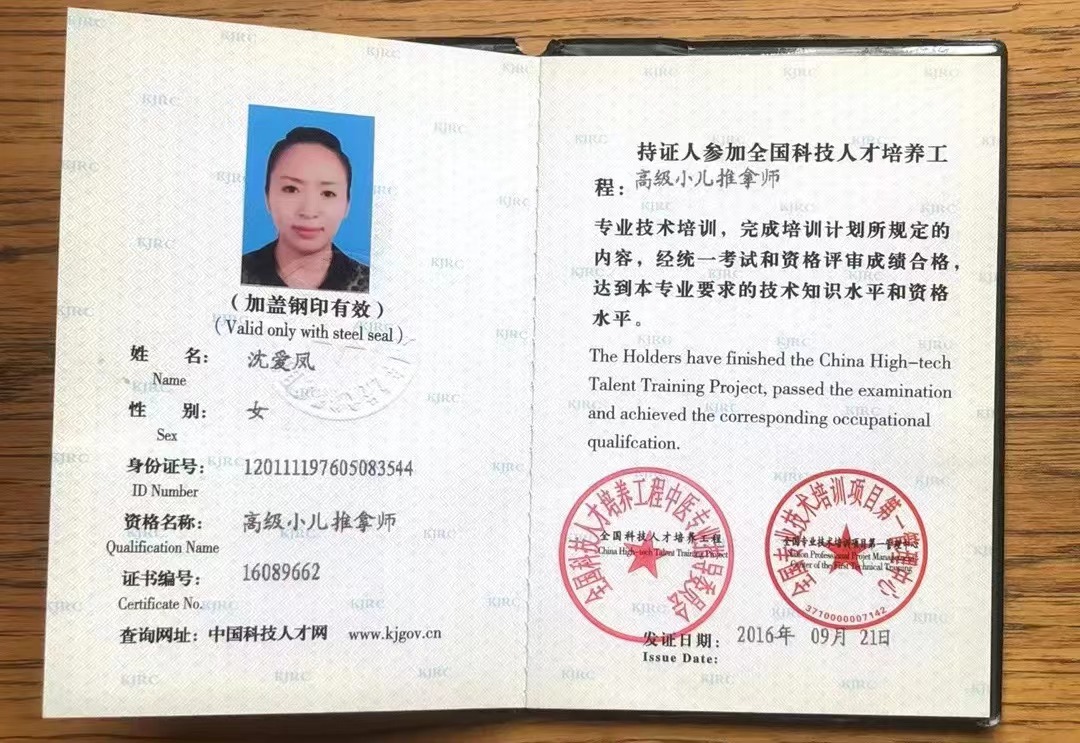 (加盖钢印有效)
(Valid only with steel seal)
姓 名: 沈爱凤
Name
性 别: 女
Sex
身份证号: 120111197605083544
ID Number
资格名称: 高级小儿推拿师
Qualification Name
证书编号: 16089662
Certificate No.
查询网址: 中国科技人才网 www.kjgov.cn
持证人参加全国科技人才培养工
程: 高级小儿推拿师
专业技术培训，完成培训计划所规定的
内容，经统一考试和资格评审成绩合格，
达到本专业要求的技术知识水平和资格
水平。
The Holders have finished the China High-tech
Talent Training Project, passed the examination
and achieved the corresponding occupational
qualifcation.
全国科技人才培养工程中医专业指导委员会
全国科技人才培养工程
China High-tech Talent Training Project
全国专业技术培训项目第一管理中心
全国专业技术培训项目第一管理中心
Professional Projet
Center of the First Technical Training
3710000007142
发证日期: 2016年 09月 21日
Issue Date:
KJRC